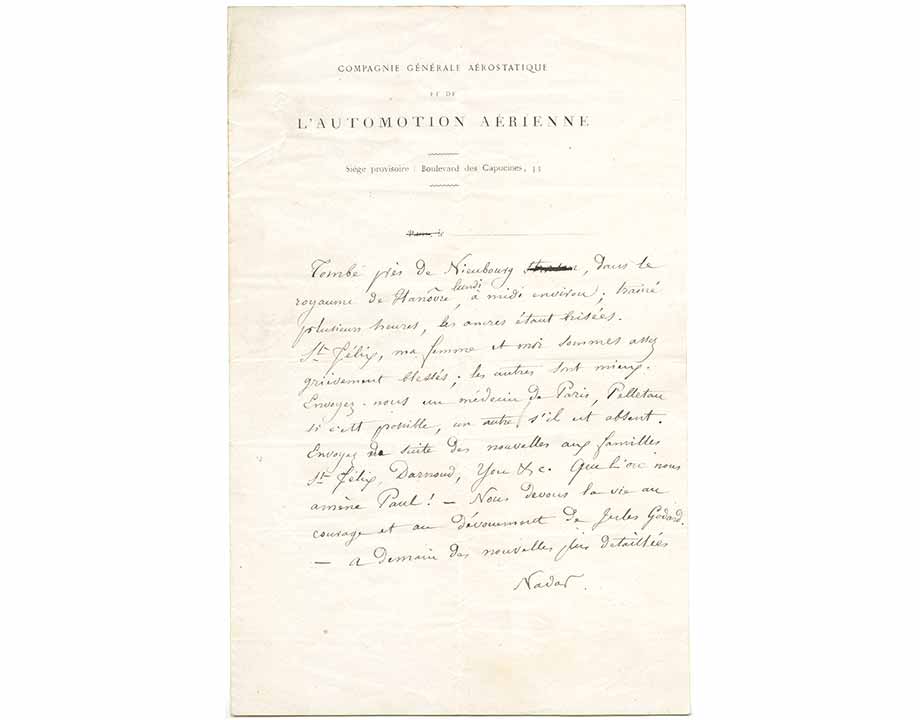 COMPAGNIE GÉNÉRALE AÉROSTATIQUE
ET DE
L'AUTOMOTION AÉRIENNE
Siège provisoire : Boulevard des Capucines, 35
Paris, le
Tombé près de Nieubourg, dans le
royaume de Hanôvre, lundi à midi environ ; trainé
plusieurs heures, les ancres étant brisées.
St Félix, ma femme et moi sommes assez
grièvement blessés ; les autres sont mieux.
Envoyez-nous un médecin de Paris, Pelletan
si c'est possible, un autre s'il est absent.
Envoyez de suite des nouvelles aux familles
St Félix, Darnoud, You &c. Que l'on nous
amène Paul ! — Nous devons la vie au
courage et au dévouement de Jules Godard.
— a demain des nouvelles plus detaillées
Nadar.